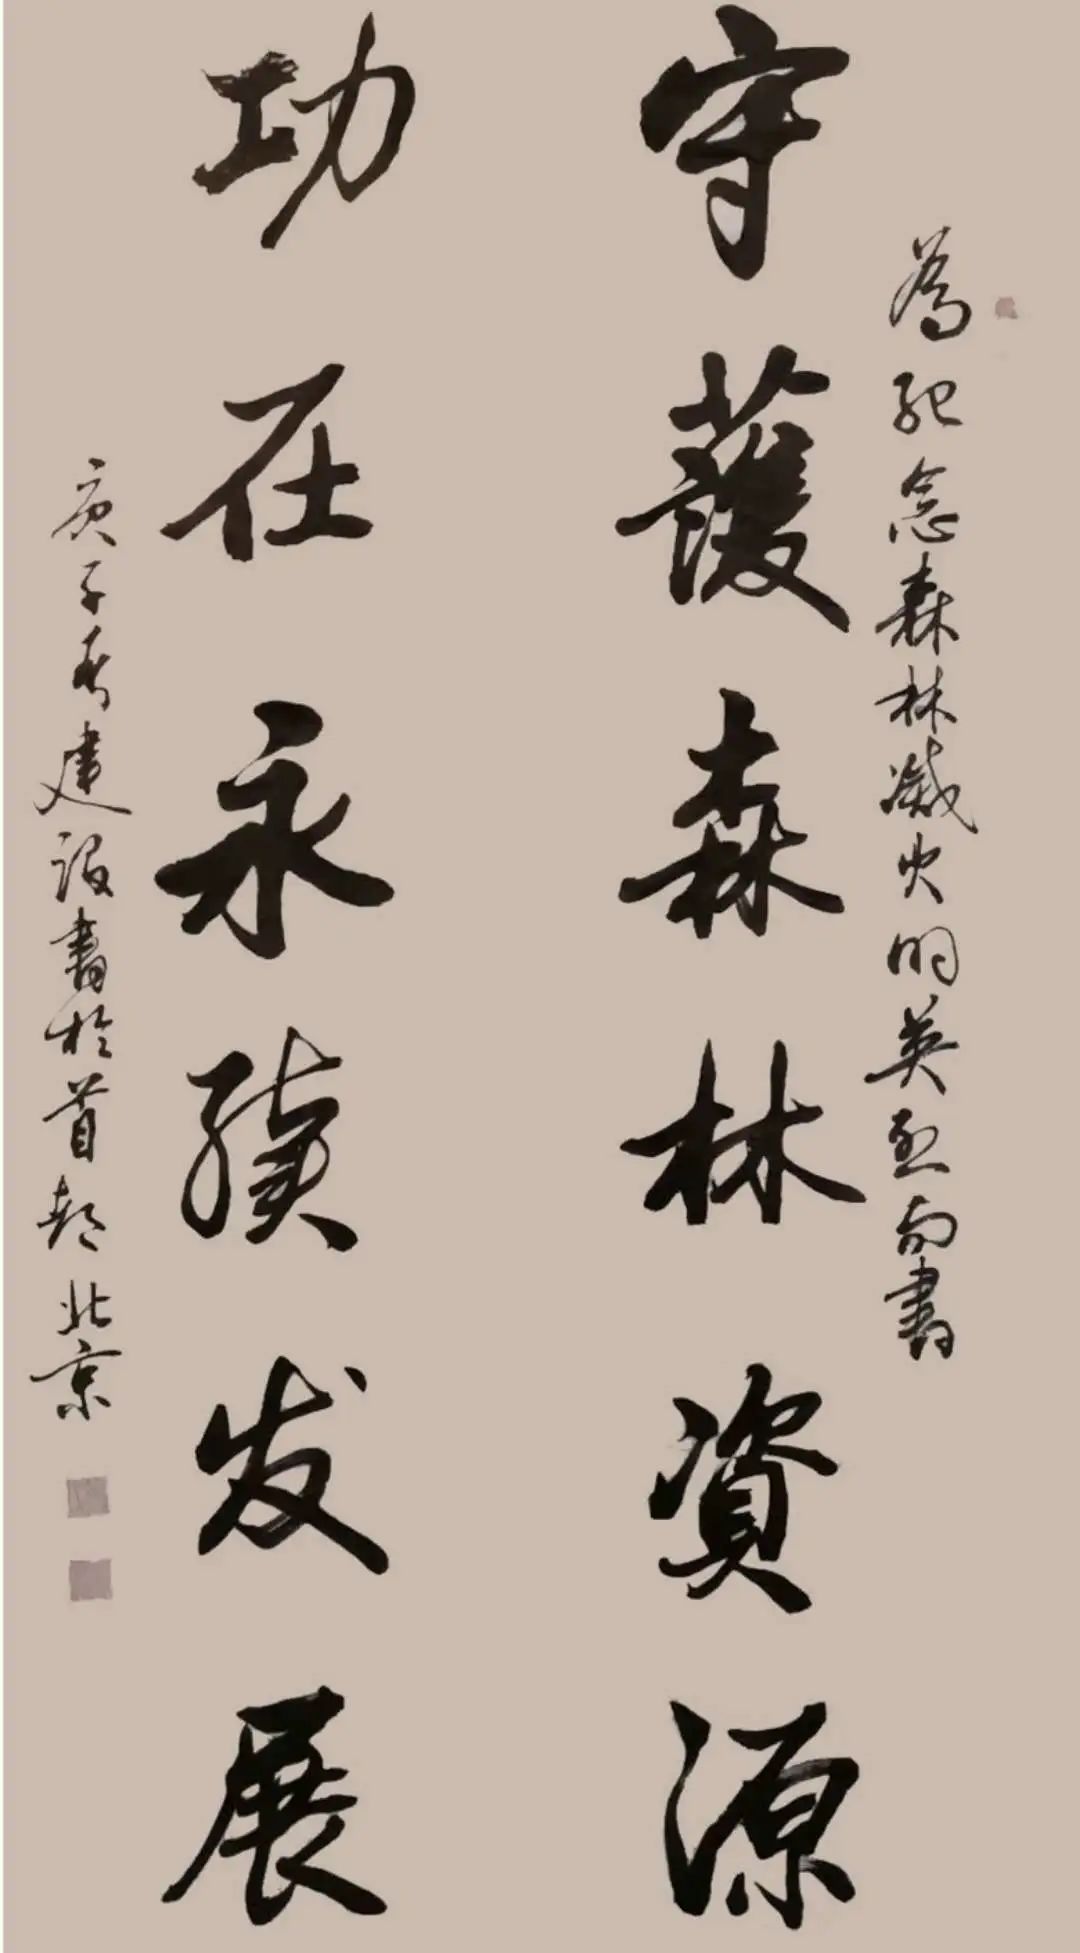 为纪念森林滅火的英烈而書
守護森林資源
功在永续发展
庚子春建设書於首都北京